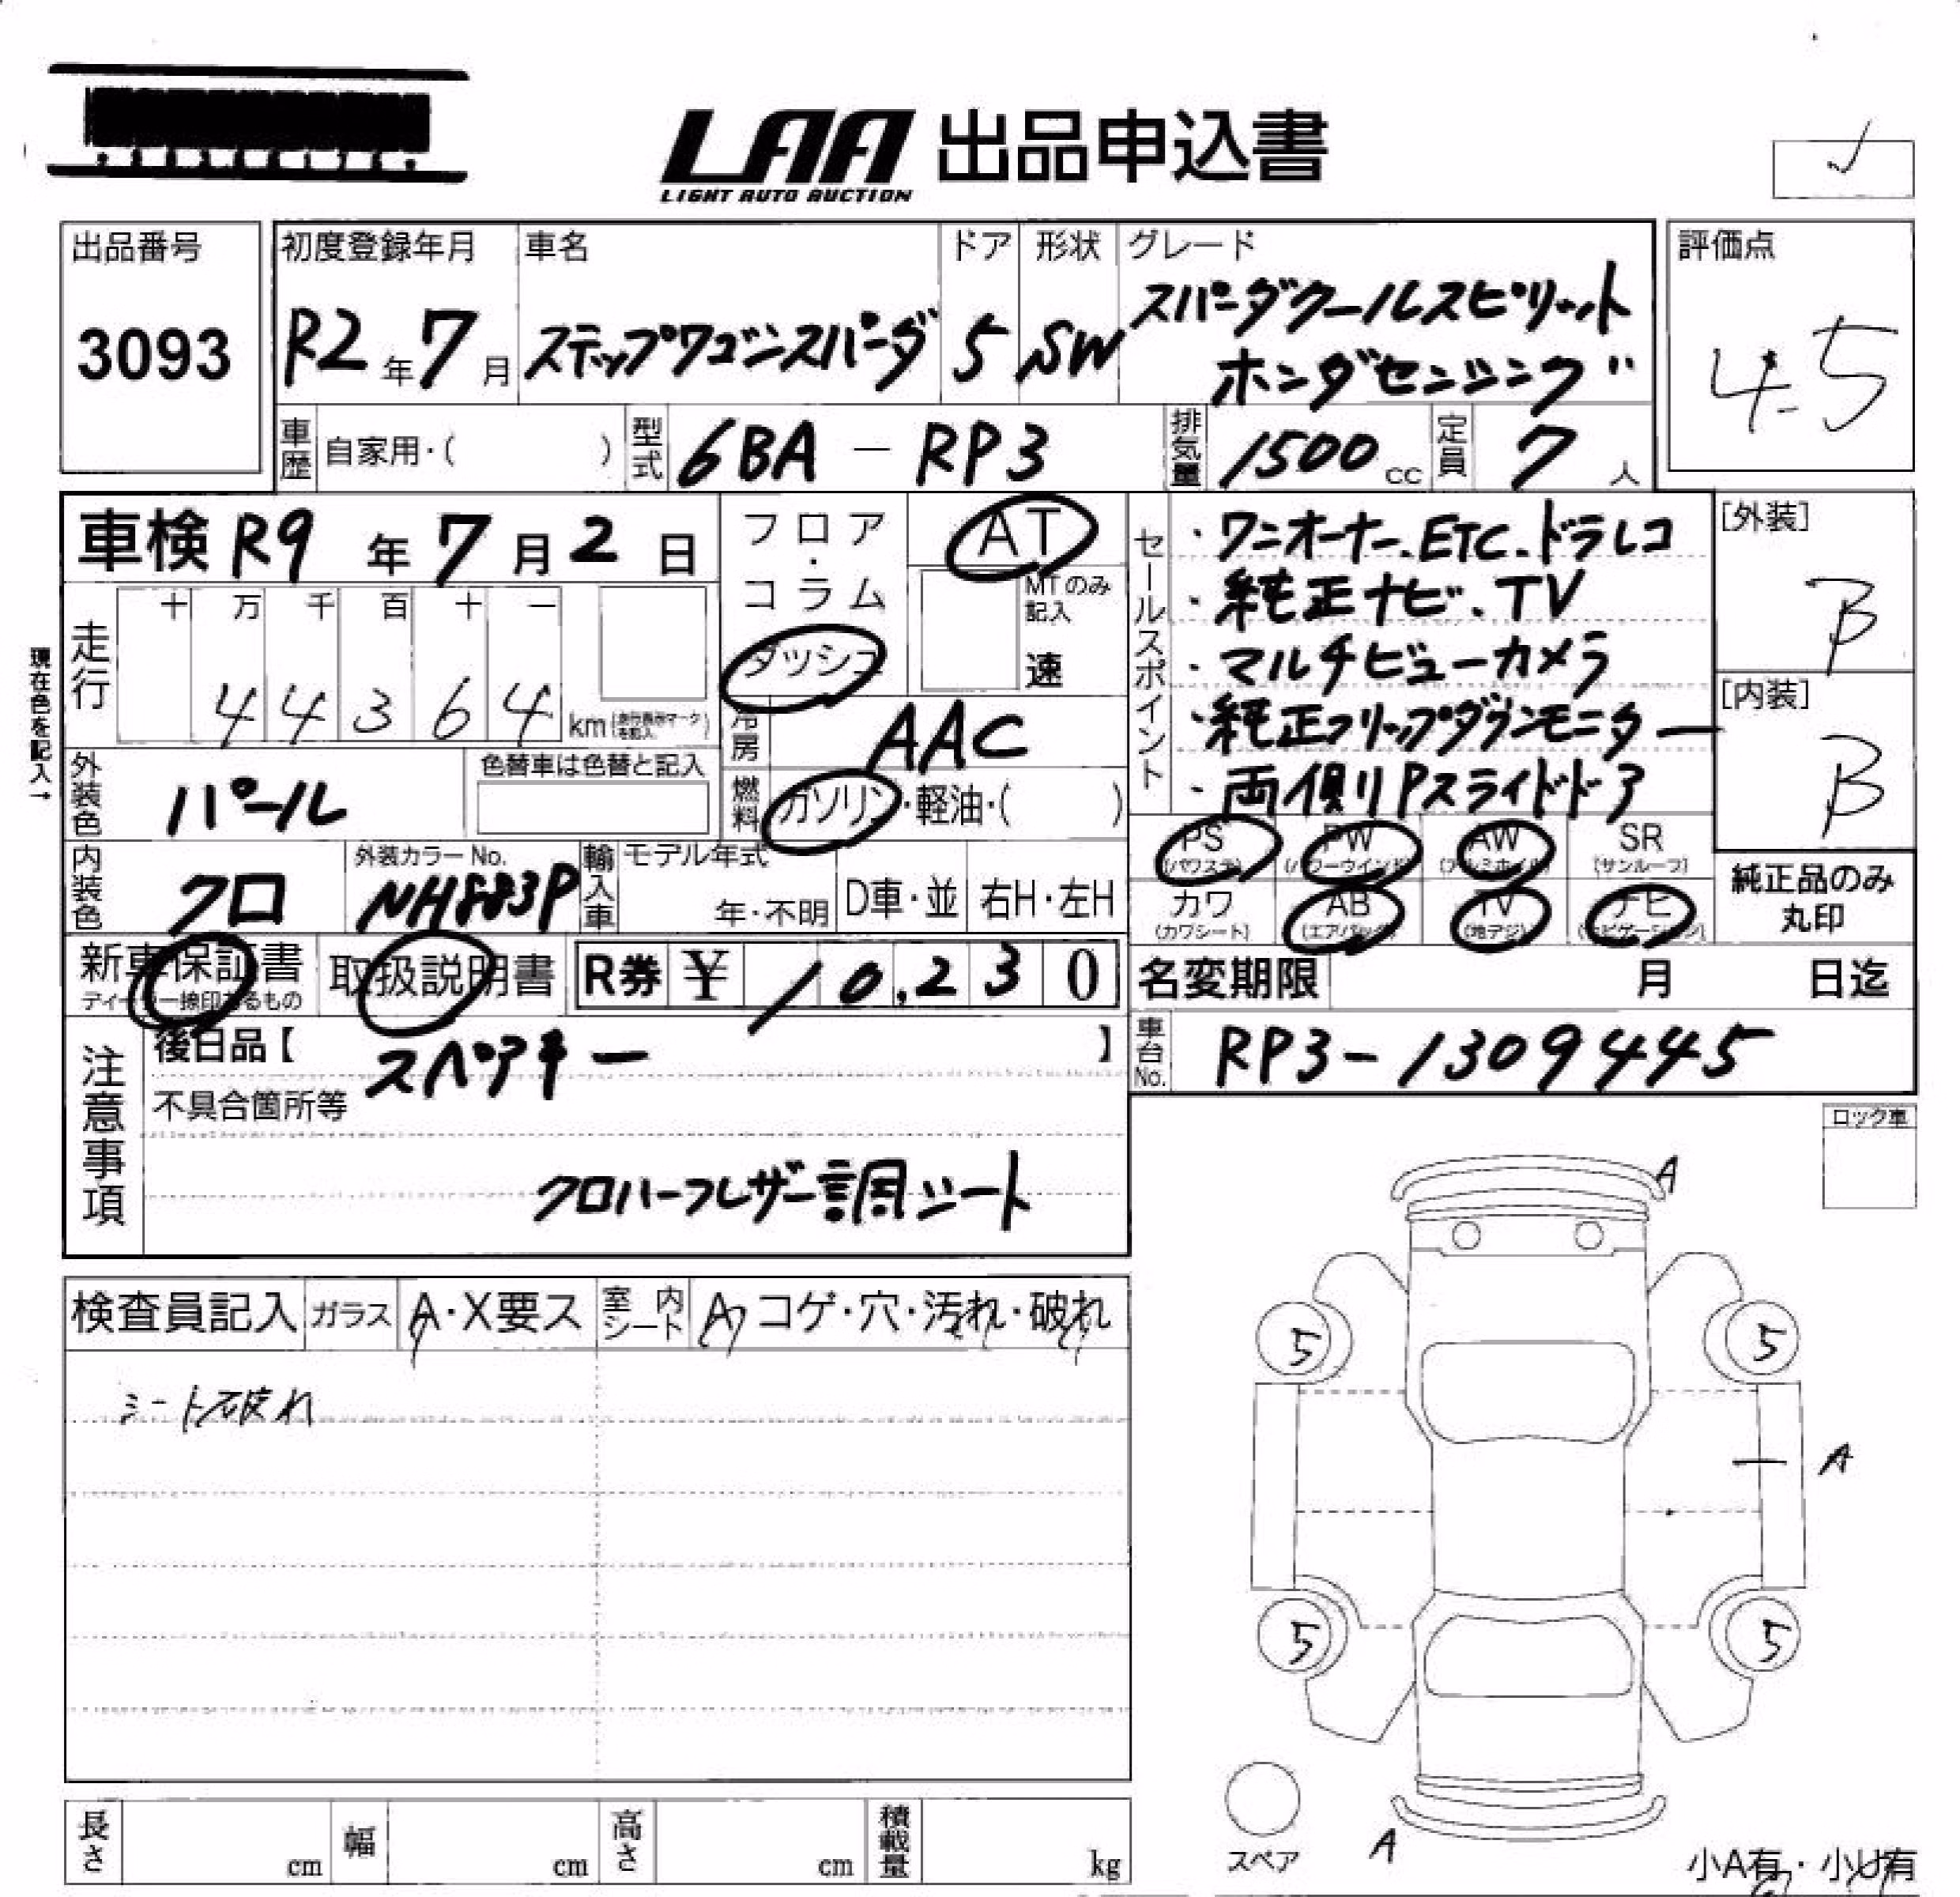 LAA 出品申込書
LIGHT AUTO AUCTION
出品番号
3093
初度登録年月
R2年7月
車名
ステップワゴンスパーダ
ドア
5
形状
SW
グレード
スパーダクールスピリット
ホンダセンシング
評価点
4.5
車歴
自家用・( )
型式
6BA - RP3
排気量
1500cc
定員
7人
車検 R9年7月2日
フロア・コラム
ダッシュ
AT
MTのみ記入
速
走行
十 万 千 百 十 一
44364 km
現在色を記入→
冷房
AAC
外装色
パール
色替車は色替と記入
燃料
ガソリン・軽油・( )
内装色
クロ
外装カラーNo.
NH883P
輸入車
モデル年式
年・不明
D車・並
右H・左H
セールスポイント
・ワンオーナー、ETC、ドラレコ
・純正ナビ、TV
・マルチビューカメラ
・純正フリップダウンモニター
・両側Pスライドドア
[外装]
B
[内装]
B
PS (パワステ)
PW (パワーウインド)
AW (アルミホイル)
SR (サンルーフ)
カワ (カワシート)
AB (エアバック)
TV (地デジ)
ナビ (ナビゲーション)
純正品のみ丸印
新車保証書
ディーラー捺印あるもの
取扱説明書
R券 ¥ 10,230
名変期限 月 日迄
車台No.
RP3-1309445
注意事項
後日品【 スペアキー 】
不具合箇所等
クロハーフレザー調シート
ロック車
検査員記入
ガラス
A・X要ス
室内シート
A コゲ・穴・汚れ・破れ
シート破れ
A
5 5
A
5 5
スペア
A
小A有・小U有
長さ cm
幅 cm
高さ cm
積載量 kg